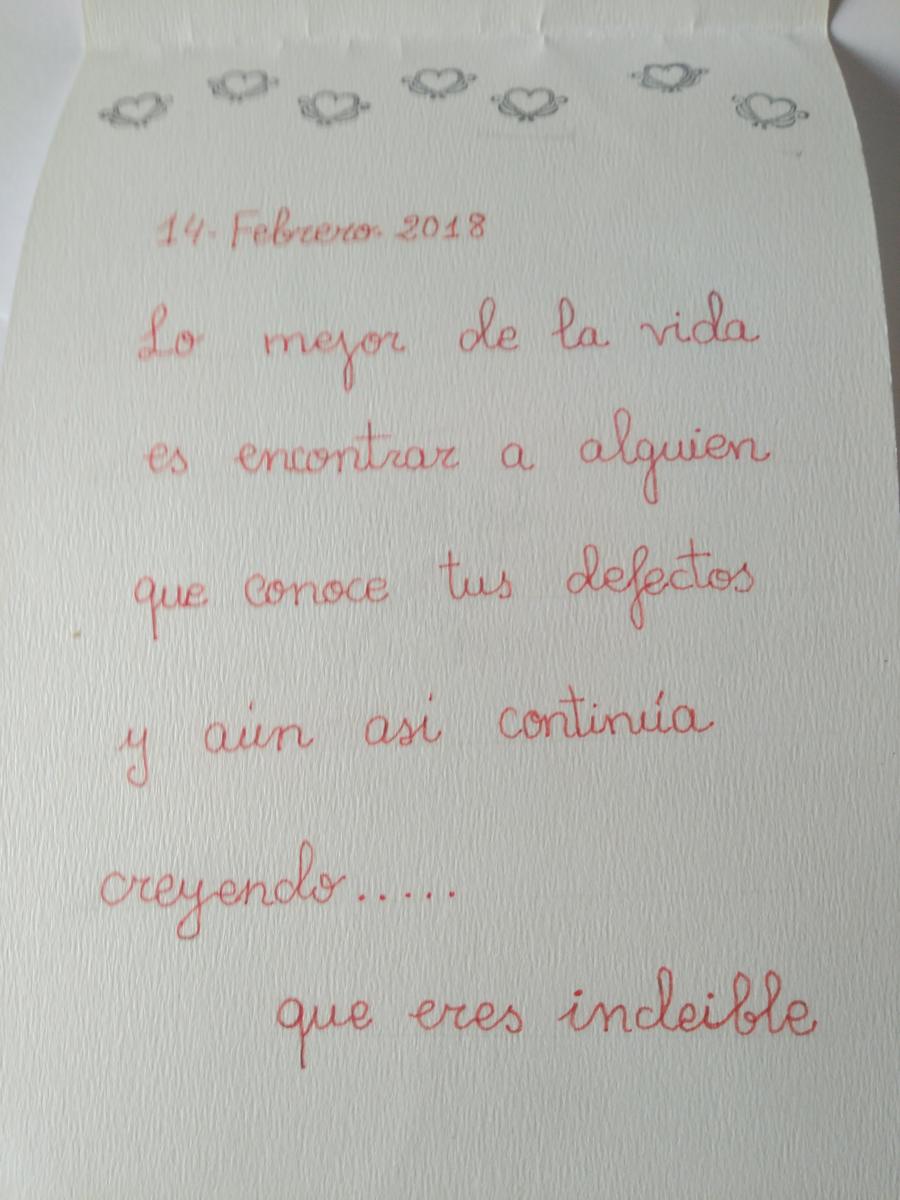 14-Febrero-2018
Lo mejor de la vida
es encontrar a alguien
que conoce tus defectos
y aún asi continúa
creyendo.....
que eres indeible